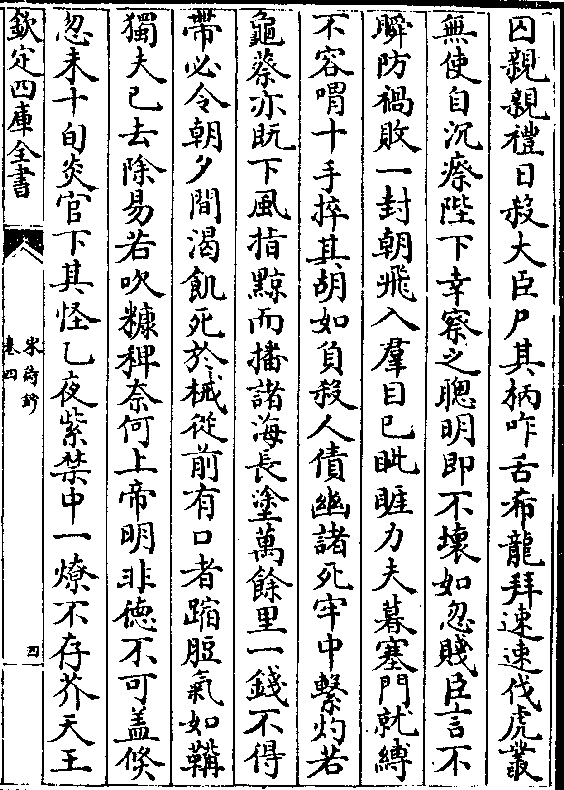 囚親親禮日殺大臣尸其柄咋舌希龍拜速速伐虎叢
無使自沉瘵陛下幸察之聰明即不壞如忽賤臣言不
瞬防禍敗一封朝飛入羣目已眦睚力夫暮塞門就縛
不容喟十手捽其胡如負殺人債幽諸死牢中繫灼若
龜蔡亦既下風指黥而播諸海長塗萬餘里一錢不得
帶必令朝夕間渴飢死於械從前有口者蹜脰氣如鞲
獨夫已去除易若吹糠稗奈何上帝明非德不可蓋倏
忽未十旬炎官下其怪乙夜紫禁中一燎不存芥天王
欽定四庫全書
宋詩鈔
卷四
四